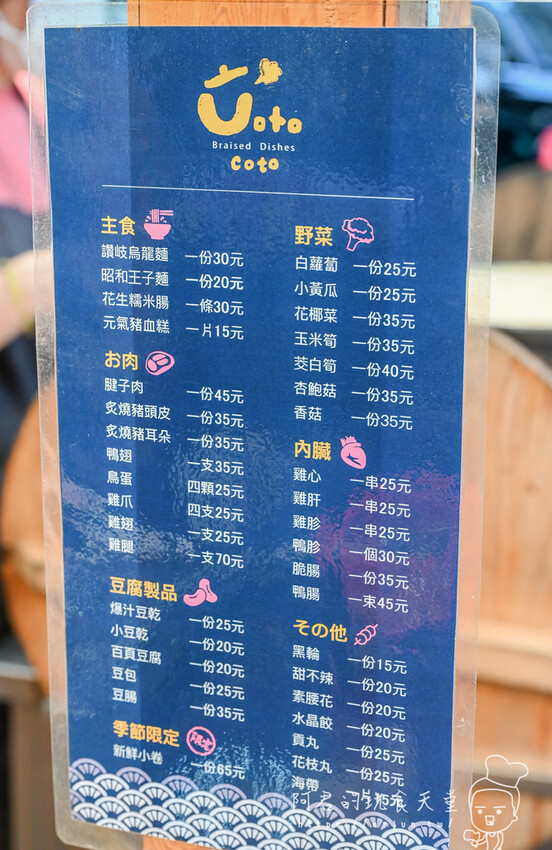 立oto
Braised Dishes
coto
主食
讚岐烏龍麵 一份30元
昭和王子麵 一份20元
花生糯米腸 一條30元
元氣豬血糕 一片15元
お肉
腱子肉 一份45元
炙燒豬頭皮 一份35元
炙燒豬耳朵 一份35元
鴨翅 一支35元
鳥蛋 四顆25元
雞爪 四支25元
雞翅 一支25元
雞腿 一支70元
豆腐製品
爆汁豆乾 一份25元
小豆乾 一份20元
百頁豆腐 一份20元
豆包 一份25元
豆腸 一份35元
季節限定
限定
新鮮小卷 一份65元
野菜
白蘿蔔 一份25元
小黃瓜 一份25元
花椰菜 一份35元
玉米筍 一份35元
茭白筍 一份40元
杏鮑菇 一份35元
香菇 一份35元
內臟
雞心 一串25元
雞肝 一串25元
雞胗 一串25元
鴨胗 一個30元
脆腸 一份35元
鴨腸 一束45元
その他
黑輪 一份15元
甜不辣 一份20元
素腰花 一份20元
水晶餃 一份20元
貢丸 一份25元
花枝丸 一份25元
海帶
阿君的玩食天堂